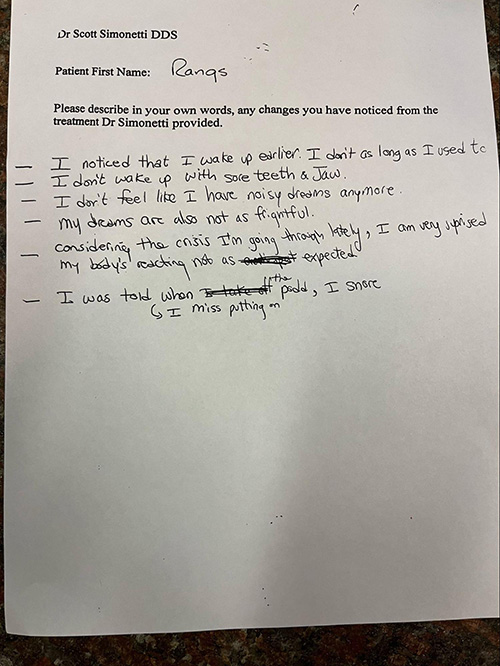 Dr Scott Simonetti DDS
Patient First Name: Rangs
Please describe in your own words, any changes you have noticed from the
treatment Dr Simonetti provided.
— I noticed that I wake up earlier. I don't as long as I used to
— I don't wake up with sore teeth & Jaw.
— I don't feel like I have noisy dreams anymore.
— my dreams are also not as frightful.
— considering the crisis I'm going through lately, I am very suprised
my body's reacting not as expected.
— I was told when the padd, I snore
↳ I miss putting on